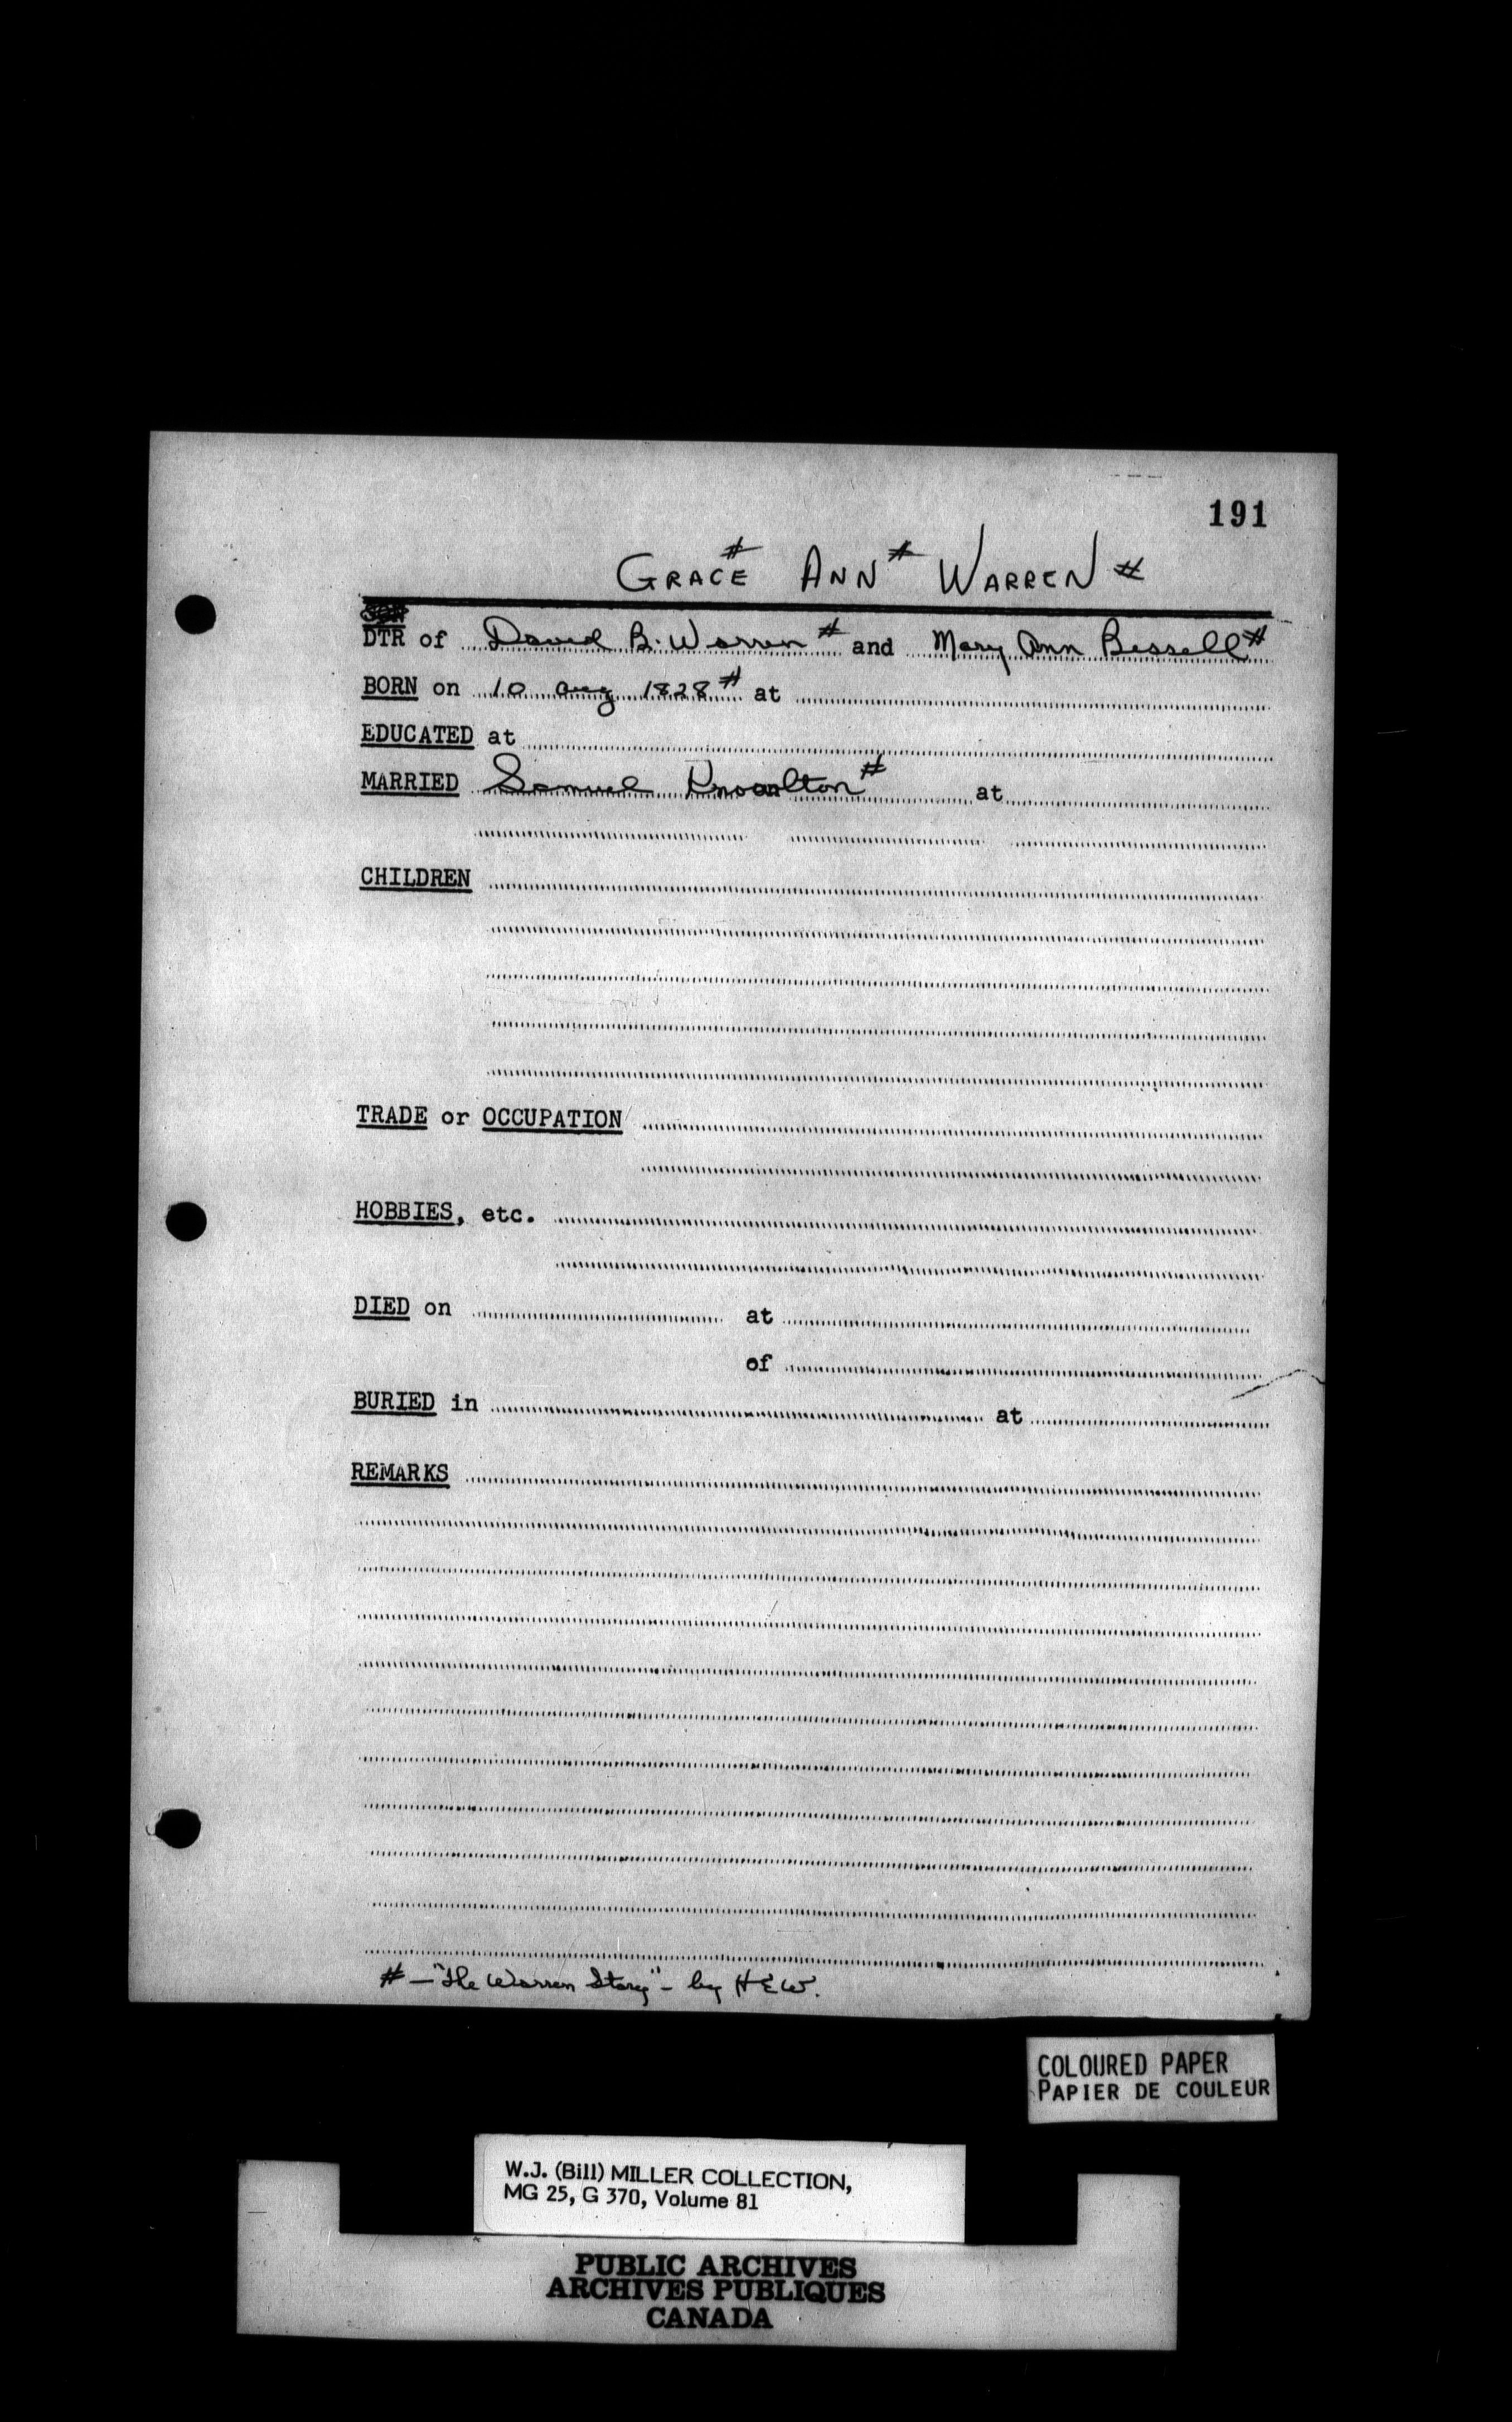 191
GRACE # ANN # WARREN #
DTR of David B. Warren # and Mary Ann Bissell #
BORN on 10 Aug 1828 # at
EDUCATED at
MARRIED Samuel Knowlton # at
CHILDREN
TRADE or OCCUPATION
HOBBIES, etc.
DIED on at
of
BURIED in at
REMARKS
# - "The Warren Story" - by HEW.
COLOURED PAPER
PAPIER DE COULEUR
W.J. (Bill) MILLER COLLECTION,
MG 25, G 370, Volume 81
PUBLIC ARCHIVES
ARCHIVES PUBLIQUES
CANADA